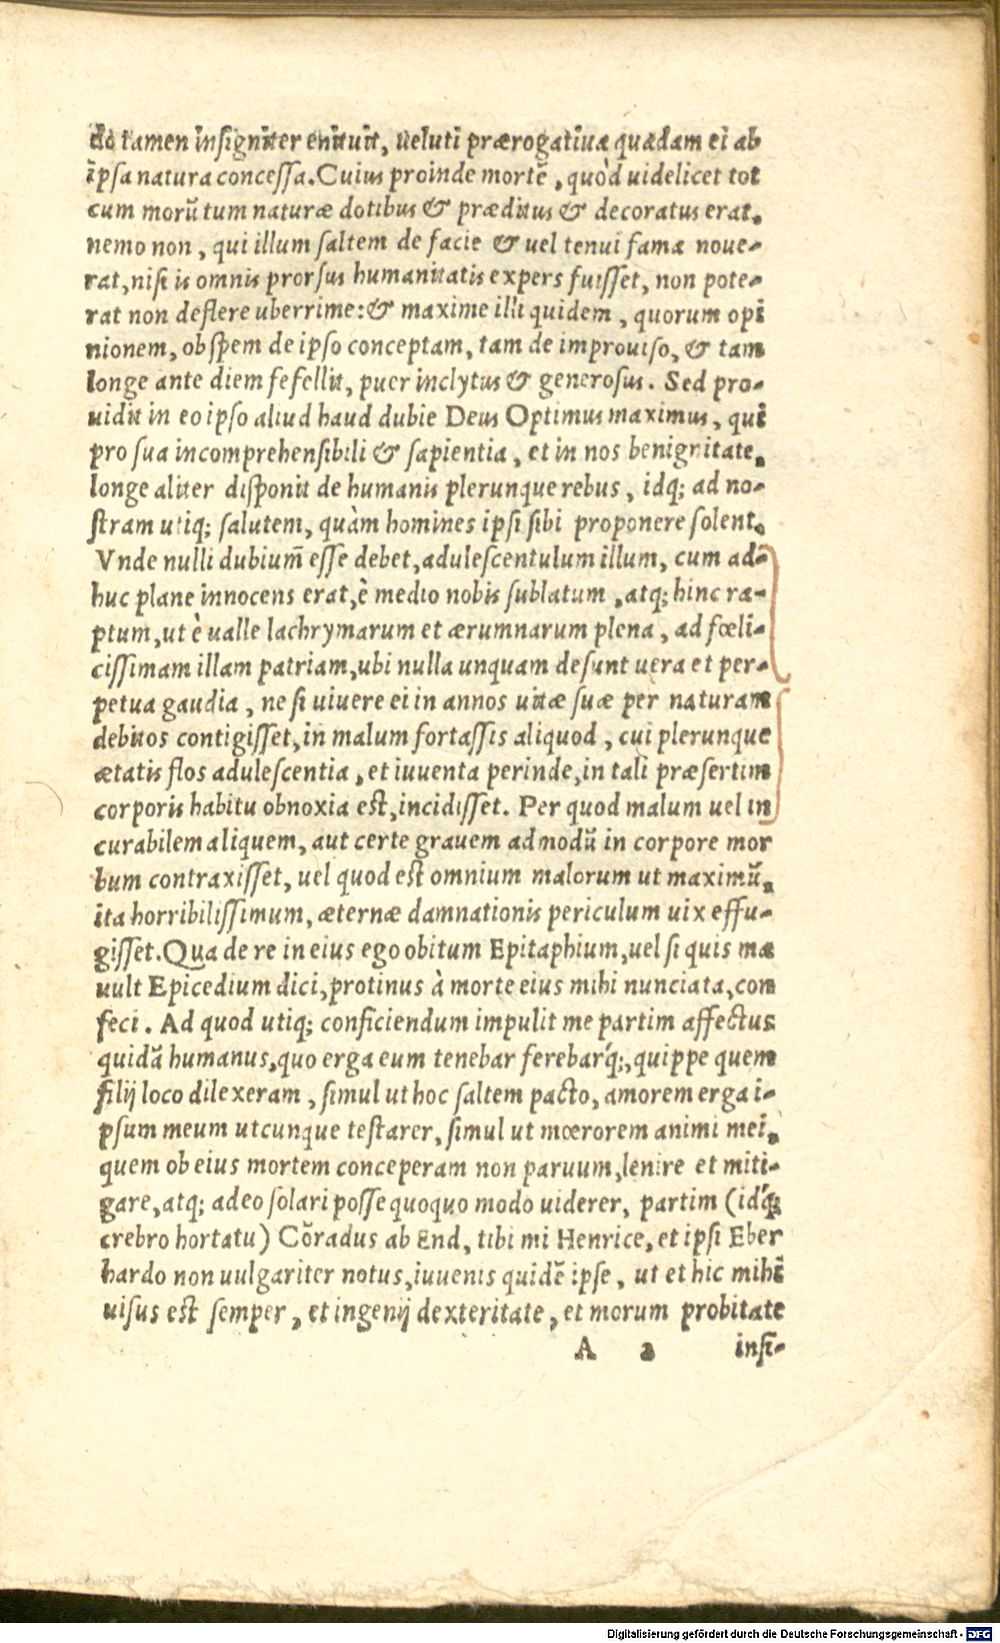 do tamen insigniter enituit, ueluti prærogatiua quædam ei ab
ipsa natura concessa. Cuius proinde mortē, quòd uidelicet tot
cum morũ tum naturæ dotibus & præditus & decoratus erat,
nemo non, qui illum saltem de facie & uel tenui fama noue-
rat, nisi is omnis prorsus humanitatis expers fuisset, non pote-
rat non deflere uberrime: & maxime illi quidem, quorum opi
nionem, ob spem de ipso conceptam, tam de improuiso, & tam
longe ante diem fefellit, puer inclytus & generosus. Sed pro-
uidit in eo ipso aliud haud dubie Deus Optimus maximus, qui
pro sua incomprehensibili & sapientia, et in nos benignitate,
longe aliter disponit de humanis plerunque rebus, idq; ad no-
stram utiq; salutem, quàm homines ipsi sibi proponere solent.
Vnde nulli dubium̃ esse debet, adulescentulum illum, cum ad-
huc plane innocens erat, è medio nobis sublatum, atq; hinc ra-
ptum, ut è ualle lachrymarum et ærumnarum plena, ad fœli-
cissimam illam patriam, ubi nulla unquam desunt uera et per-
petua gaudia, ne si uiuere ei in annos uitæ suæ per naturam
debitos contigisset, in malum fortassis aliquod, cui plerunque
ætatis flos adulescentia, et iuuenta perinde, in tali præsertim
corporis habitu obnoxia est, incidisset. Per quod malum uel in
curabilem aliquem, aut certe grauem admodũ in corpore mor
bum contraxisset, uel quod est omnium malorum ut maximũ,
ita horribilissimum, æternæ damnationis periculum uix effu-
gisset. Qua de re in eius ego obitum Epitaphium, uel si quis ma
uult Epicedium dici, protinus à morte eius mihi nunciata, con
feci. Ad quod utiq; conficiendum impulit me partim affectus
quidã humanus, quo erga eum tenebar ferebarq́;, quippe quem
filij loco dilexeram, simul ut hoc saltem pacto, amorem erga i-
psum meum utcunque testarer, simul ut mœrorem animi mei,
quem ob eius mortem conceperam non paruum, lenire et miti-
gare, atq; adeo solari posse quoquo modo uiderer, partim (idq́;
crebro hortatu) Cõradus ab End, tibi mi Henrice, et ipsi Eber
hardo non uulgariter notus, iuuenis quidē ipse, ut et hic mihi
uisus est semper, et ingenij dexteritate, et morum probitate
A a insi-
Digitalisierung gefördert durch die Deutsche Forschungsgemeinschaft - DFG